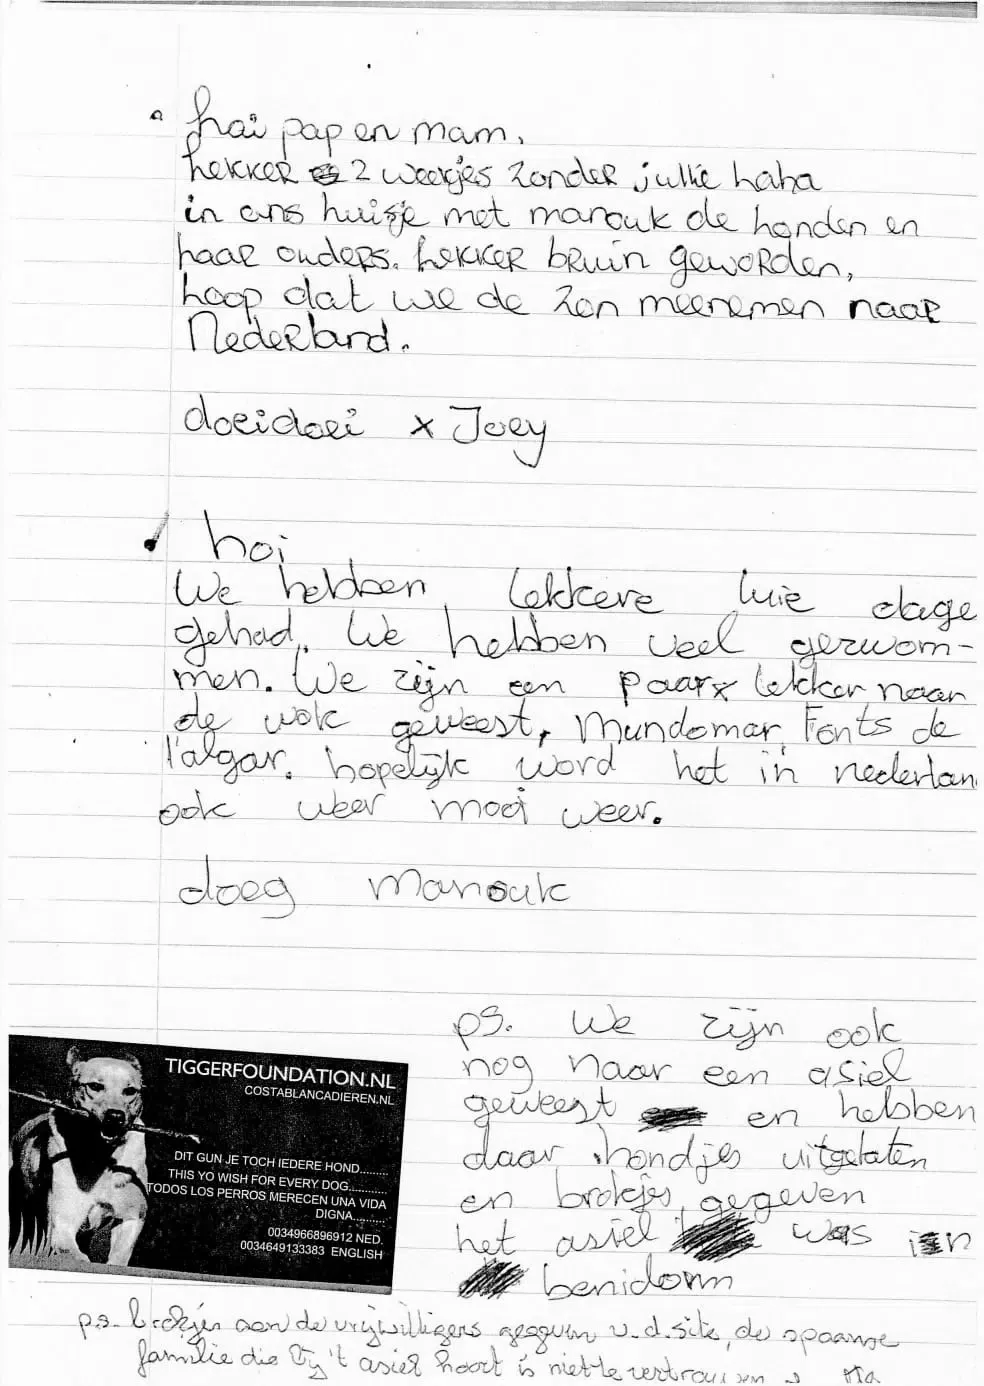 hai pap en mam,
hekker 2 weekjes zonder jullie haha
in ons huisje met manouk de honden en
haar ouders. hekker bruin geworden,
hoop dat we de zon meenemen naar
Nederland.
doeidoei x Joey
hoi
We hebben lekkere luie dage
gehad. We hebben veel gezwom-
men. We zijn een paar x lekker naar
de wok geweest, Mundomar, Fonts de
l'algar. hopelijk word het in nederlan
ook weer mooi weer.
doeg Manouk
ps. We zijn ook
nog naar een asiel
geweest en hebben
daar hondjes uitgelaten
en brokjes gegeven
het asiel was in
benidorm
TIGGERFOUNDATION.NL
COSTABLANCADIEREN.NL
DIT GUN JE TOCH IEDERE HOND.........
THIS YO WISH FOR EVERY DOG............
TODOS LOS PERROS MERECEN UNA VIDA
DIGNA..........
0034966896912 NED.
0034649133383 ENGLISH
p.s. brokjes aan de vrijwilligers gegeven v.d. site, de spaanse
familie die bij 't asiel hoort is niet te vertrouwen